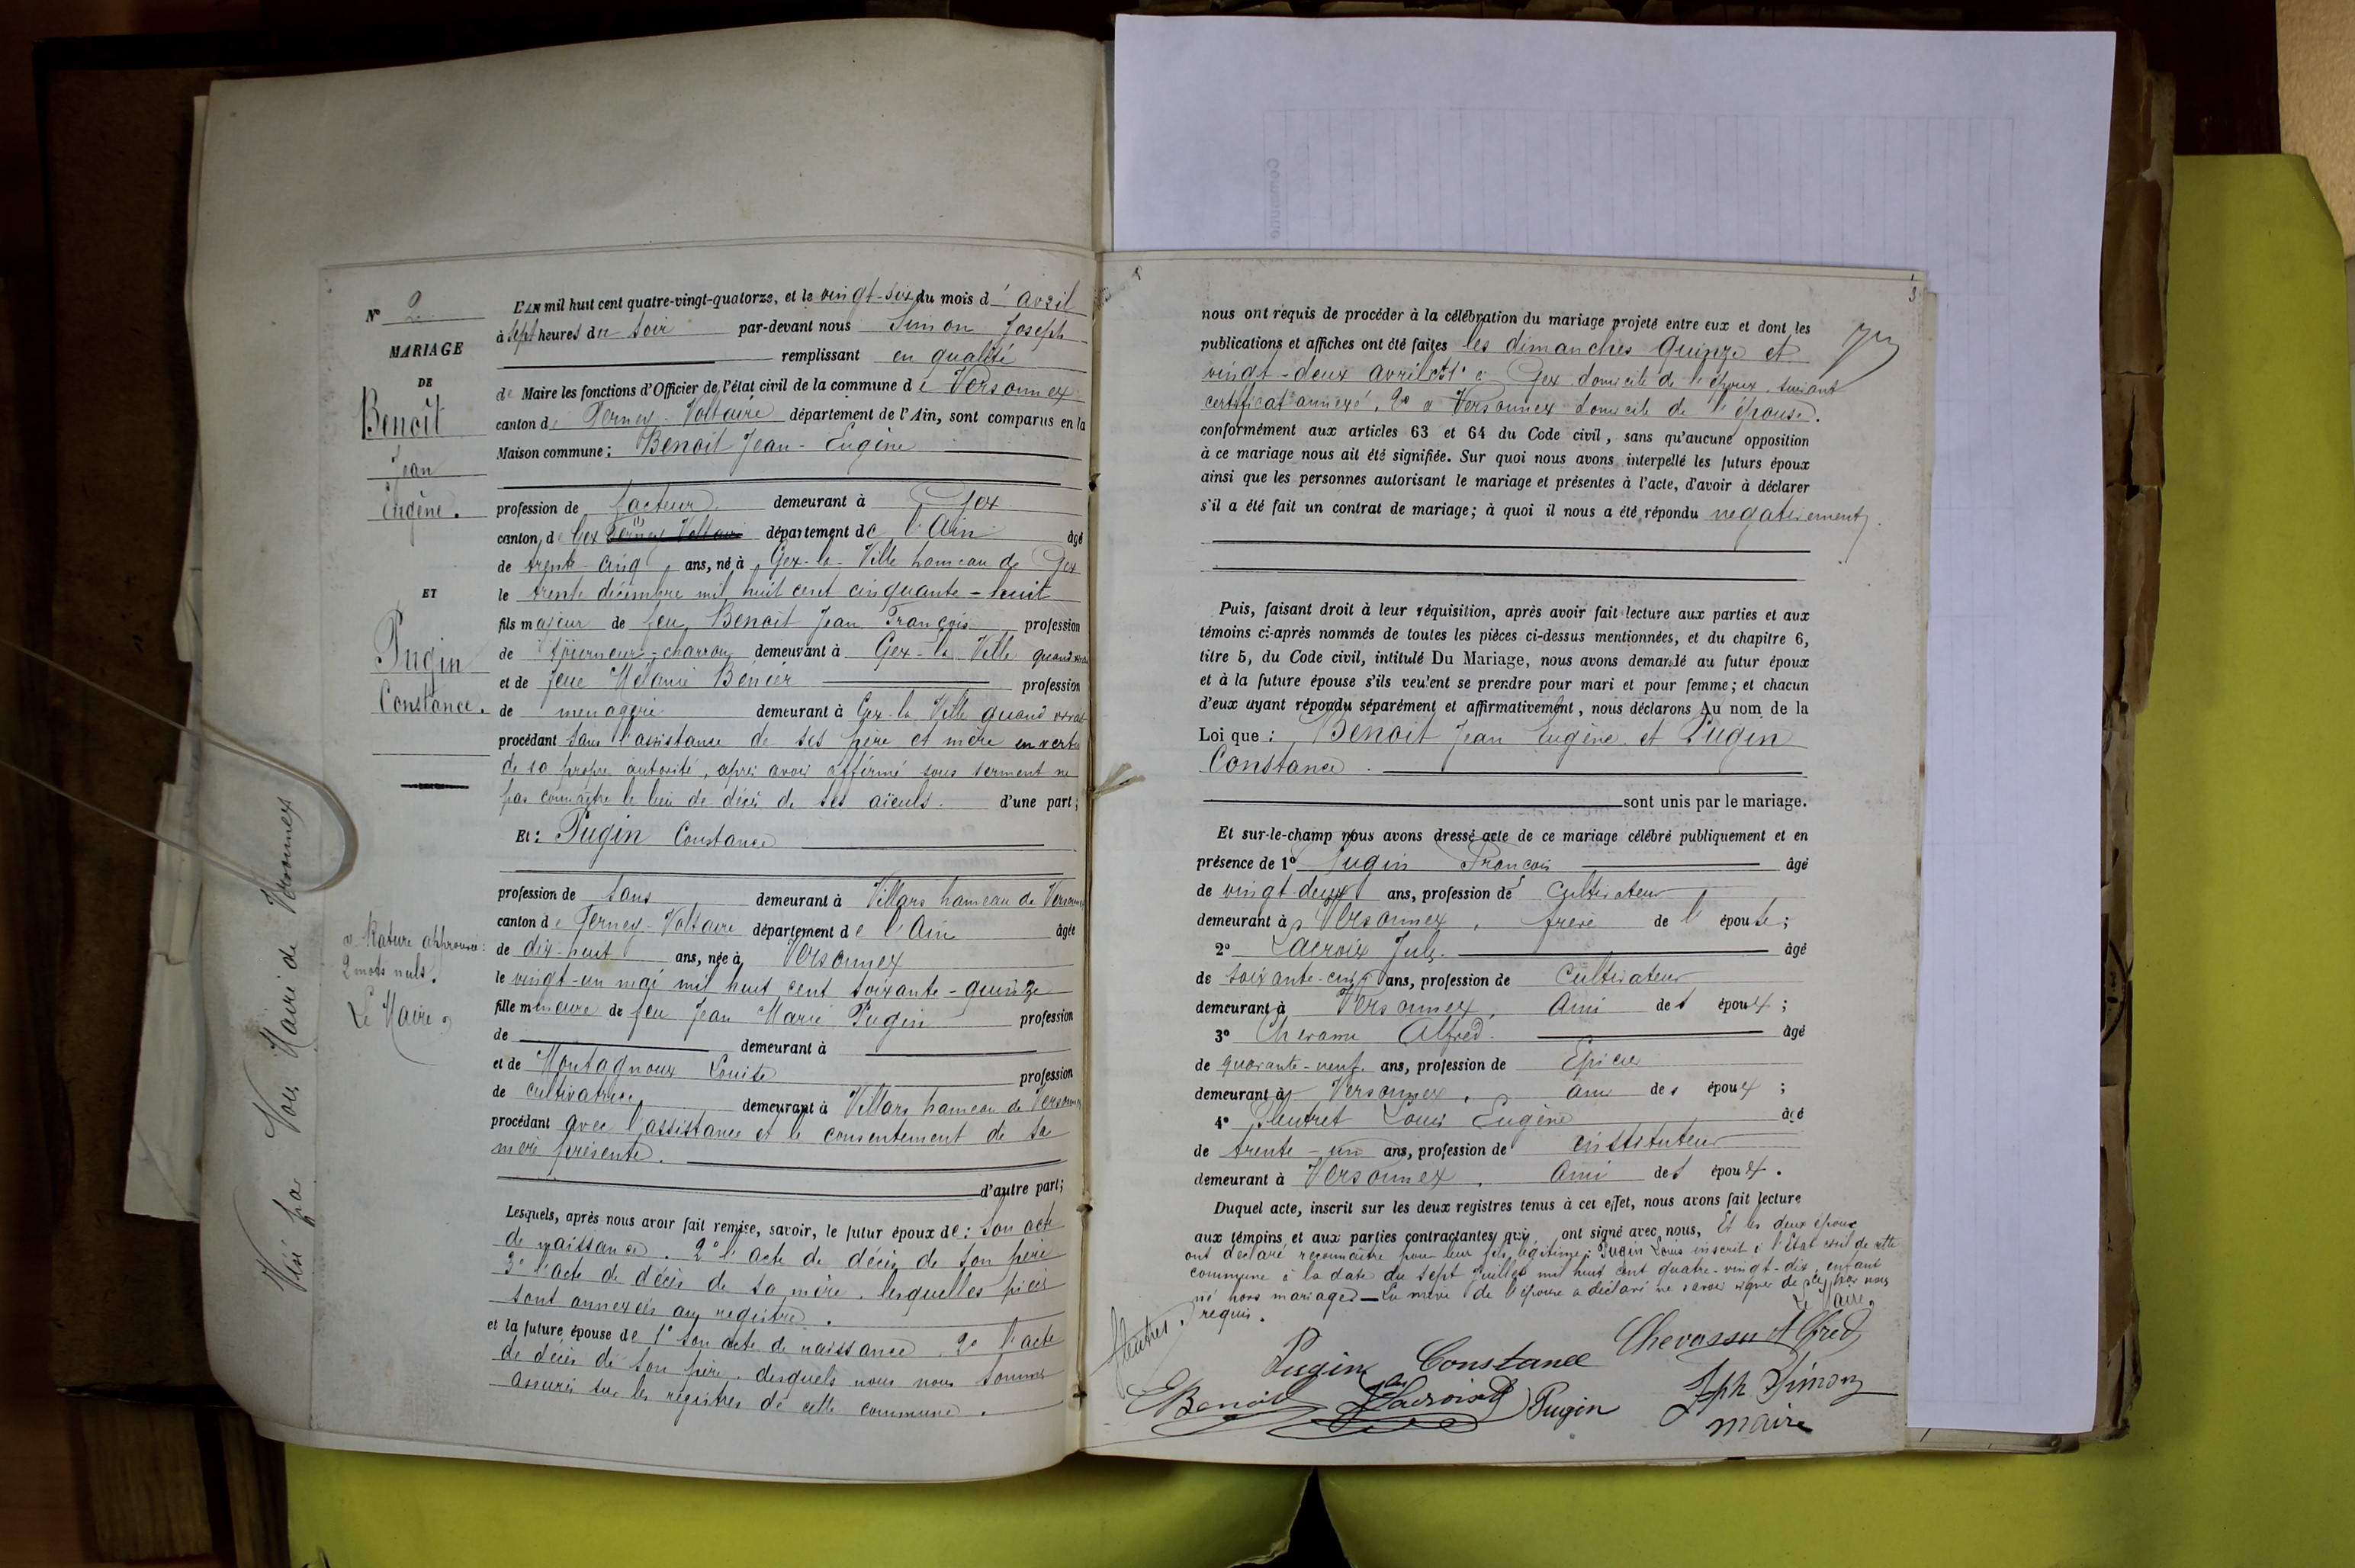 N° 2
MARIAGE
DE
Benoît
Jean
Eugène.
ET
Pugin
Constance.
Rature approuvée :
2 mots nuls.
Le Maire
Visé par Nous Maire de Versonnex
L'AN mil huit cent quatre-vingt-quatorze, et le vingt-six du mois d'avril
à sept heures du soir par-devant nous Simon Joseph
remplissant en qualité
de Maire les fonctions d'Officier de l'état civil de la commune de Versonnex
canton de Ferney-Voltaire département de l'Ain, sont comparus en la
Maison commune : Benoit Jean-Eugène
profession de facteur demeurant à Gex
canton de Gex Ferney Voltaire département de l'Ain âgé
de trente-cinq ans, né à Gex-la-Ville hameau de Gex
le trente décembre mil huit cent cinquante-huit
fils majeur de feu Benoit Jean François profession
de tourneur-charron demeurant à Gex-la-Ville quand vivait
et de feue Mélanie Bénier profession
de menagère demeurant à Gex-la-Ville quand vivait
procédant sans l'assistance de ses père et mère en vertu
de sa propre autorité, après avoir affirmé sous serment ne
pas connaître le lieu de décès de ses aïeuls. d'une part ;
Et : Pugin Constance
profession de sans demeurant à Villars hameau de Versonnex
canton de Ferney-Voltaire département de l'Ain âgée
de dix-huit ans, née à Versonnex
le vingt-un mai mil huit cent soixante-quinze
fille mineure de feu Jean Marie Pugin profession
de demeurant à
et de Montagnoux Louise profession
de cultivatrice demeurant à Villars hameau de Versonnex
procédant avec l'assistance et le consentement de sa
mère présente.
d'autre part ;
Lesquels, après nous avoir fait remise, savoir, le futur époux de : son acte
de naissance. 2° l'acte de décès de son père
3° l'acte de décès de sa mère, lesquelles pièces
sont annexées au registre.
et la future épouse de 1° son acte de naissance. 2° l'acte
de décès de son père, desquels nous nous sommes
assurés sur les registres de cette commune.
nous ont requis de procéder à la célébration du mariage projeté entre eux et dont les
publications et affiches ont été faites les dimanches Quinze et
vingt-deux avril ct 1° à Gex domicile de l'époux, suivant
certificat annexé, 2° à Versonnex domicile de l'épouse.
conformément aux articles 63 et 64 du Code civil, sans qu'aucune opposition
à ce mariage nous ait été signifiée. Sur quoi nous avons interpellé les futurs époux
ainsi que les personnes autorisant le mariage et présentes à l'acte, d'avoir à déclarer
s'il a été fait un contrat de mariage ; à quoi il nous a été répondu negativement.
Puis, faisant droit à leur réquisition, après avoir fait lecture aux parties et aux
témoins ci-après nommés de toutes les pièces ci-dessus mentionnées, et du chapitre 6,
titre 5, du Code civil, intitulé Du Mariage, nous avons demandé au futur époux
et à la future épouse s'ils veulent se prendre pour mari et pour femme ; et chacun
d'eux ayant répondu séparément et affirmativement, nous déclarons Au nom de la
Loi que : Benoit Jean Eugène et Pugin
Constance.
sont unis par le mariage.
Et sur-le-champ nous avons dressé acte de ce mariage célébré publiquement et en
présence de 1° Pugin François âgé
de vingt-deux ans, profession de cultivateur
demeurant à Versonnex, frère de l'épouse ;
2° Lacroix Jules. âgé
de soixante-cinq ans, profession de cultivateur
demeurant à Versonnex, Ami des époux ;
3° Chevassu Alfred. âgé
de quarante-neuf ans, profession de Epicier
demeurant à Versonnex, ami des époux ;
4° Pleutret Louis Eugène âgé
de trente-un ans, profession de instituteur
demeurant à Versonnex, Ami des époux.
Duquel acte, inscrit sur les deux registres tenus à cet effet, nous avons fait lecture
aux témoins et aux parties contractantes qui ont signé avec nous, Et les deux époux
ont déclaré reconnaître pour leur fils légitime : Pugin Louis inscrit à l'Etat civil de cette
commune à la date du sept juillet mil huit cent quatre-vingt-dix, enfant
né hors mariage. — La mère de l'épouse a déclaré ne savoir signer de ce par nous
requis. Le Maire,
Pugin Constance Chevassu Alfred
E Benoit Lacroix Pugin Jph Simon
maire